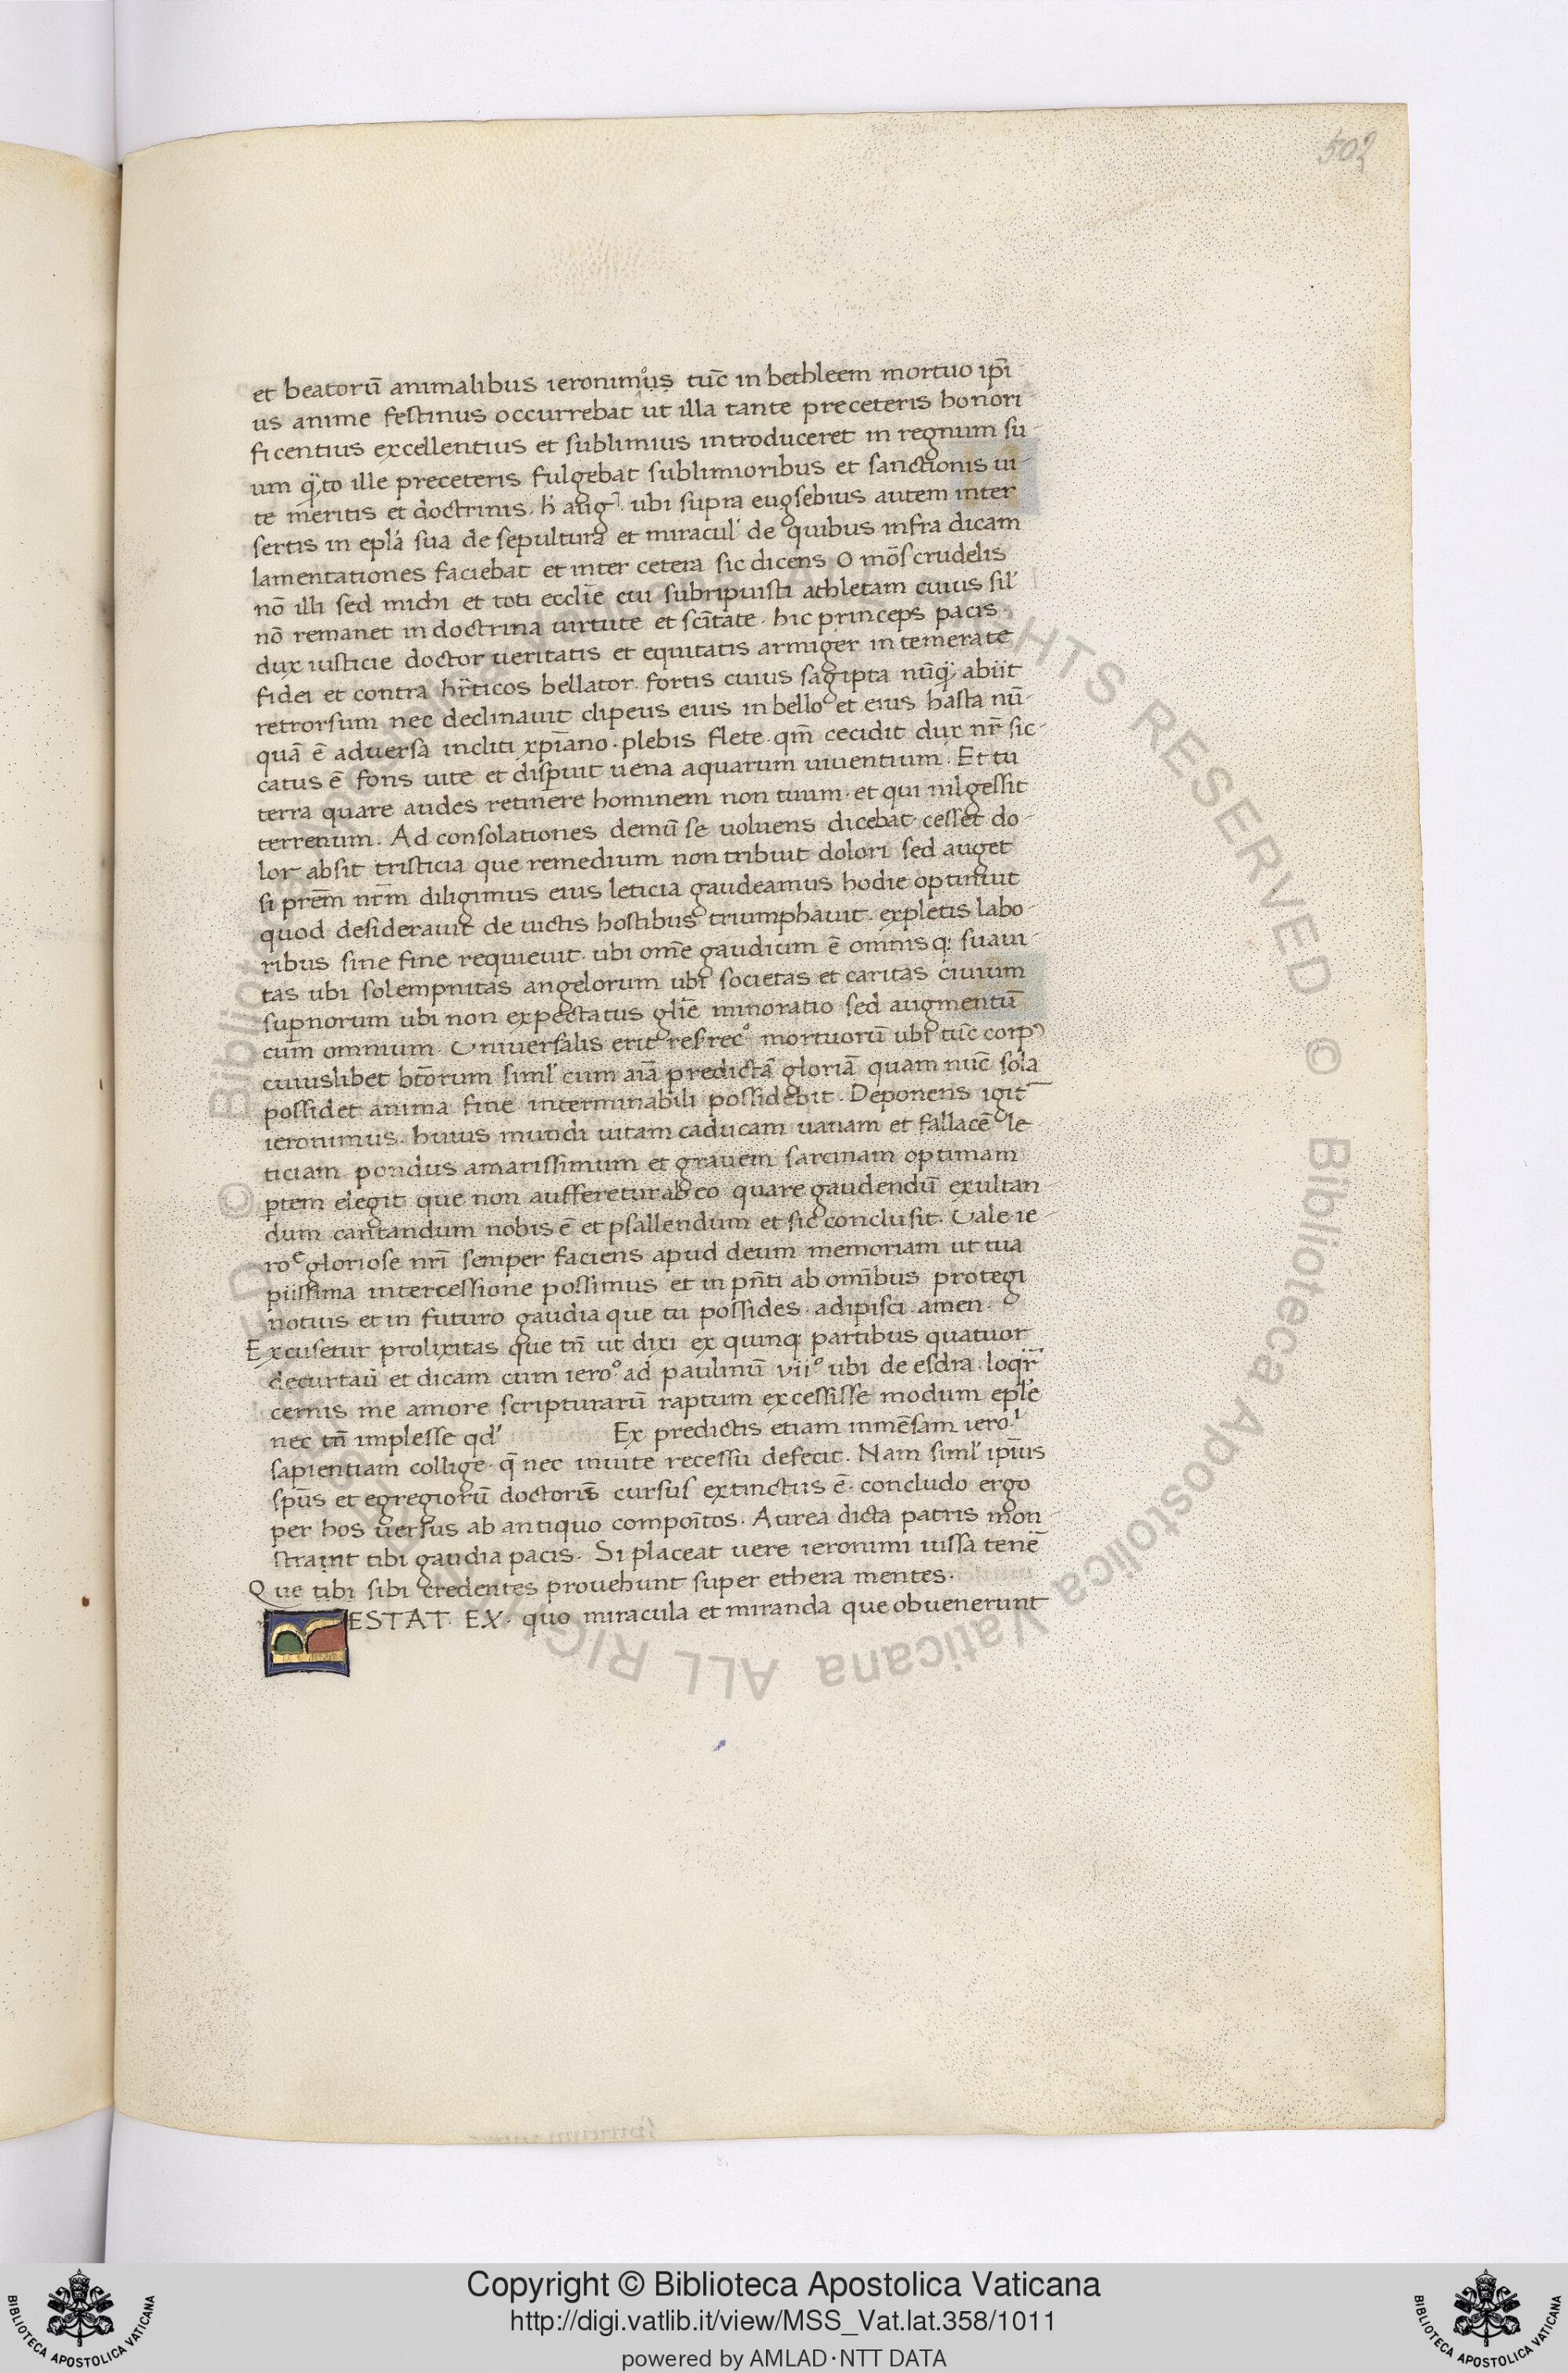 502
et beatorū animalibus ieronimus tūc in bethleem mortuo ip̄i
us anime festinus occurrebat ut illa tante preceteris honori
ficentius excellentius et sublimius introduceret in regnum su
um ille preceteris fulgebat sublimioribus et sanctionis ui
te meritis et doctrinis. aug ubi supra eugsebius autem inter
sertis in epla sua de sepultura et miracul' de quibus infra dicam
lamentationes faciebat et inter cetera sic dicens O mōs crudelis
nō illi sed michi et toti ecclīe cui subripuisti athletam cuius sil'
nō remanet in doctrina uirtute et scītate. hic princeps pacis.
dux iusticie doctor ueritatis et equitatis armiger in temerate
fidei et contra hr̄ticos bellator. fortis cuius sagipta nūq abiit
retrorsum nec declinauit clipeus eius in bello et eius hasta nū-
quā ē aduersa incliti xp̄iano. plebis flete. qm̄ cecidit dux nr̄ sic-
catus ē fons uite et disp̄uit uena aquarum uiuentium. Et tu
terra quare audes retinere hominem non tuum. et qui nil gessit
terrenum. Ad consolationes demū se uoluens dicebat. cesset do-
lor absit tristicia que remedium non tribuit dolori sed auget
si pr̄em nr̄m diligimus eius leticia gaudeamus hodie optinuit
quod desiderauit de uictis hostibus triumphauit. expletis labo-
ribus sine fine requieuit. ubi om̄e gaudium ē omnisq: suaui-
tas ubi solempnitas angelorum ubi societas et caritas ciuium
sup̄norum ubi non expectatus gl̄ie minoratio sed augmentū
cum omnium. Uniuersalis erit resrec° mortuorū ubi tūc corp
cuiuslibet bt̄orum siml' cum aīa predictā gloriā quam nūc sola
possidet anima fine interminabili possidebit. Deponens igit̄
ieronimus. huius mundi uitam caducam uanam et fallacē le
ticiam pondus amarissimum et grauem sarcinam optimam
p̄tem elegit que non aufferetur ab eo quare gaudendū exultan
dum cantandum nobis ē et psallendum et sic conclusit. Uale ie-
ro^e gloriose nr̄i semper faciens apud deum memoriam ut tua
piissima intercessione possimus et in pn̄ti ab omībus protegi
notuis et in futuro gaudia que tu possides. adipisci. amen.
Excusetur prolixitas que tn̄ ut dixi ex quinq partibus quatuor
decurtaui et dicam cum iero° ad paulinū vii° ubi de esdra. loqr̄
cernis me amore scripturarū raptum excessisse modum eple
nec tn̄ implesse qd' Ex predictis etiam inmēsam iero.
sapientiam collige. q̄ nec inuite recessu defecit. Nam siml' ip̄ius
sp̄us et egregiorū doctoris cursus extinctus ē. concludo ergo
per hos uersus ab antiquo compoītos. Aurea dicta patris mon
straint tibi gaudia pacis. Si placeat uere ieronimi iussa tenē
Que tibi sibi credentes prouehunt super ethera mentes.
RESTAT. EX. quo miracula et miranda que obuenerunt
© Biblioteca Apostolica Vaticana ALL RIGHTS RESERVED
Copyright © Biblioteca Apostolica Vaticana
http://digi.vatlib.it/view/MSS_Vat.lat.358/1011
powered by AMLAD·NTT DATA
BIBLIOTECA APOSTOLICA VATICANA
BIBLIOTECA APOSTOLICA VATICANA